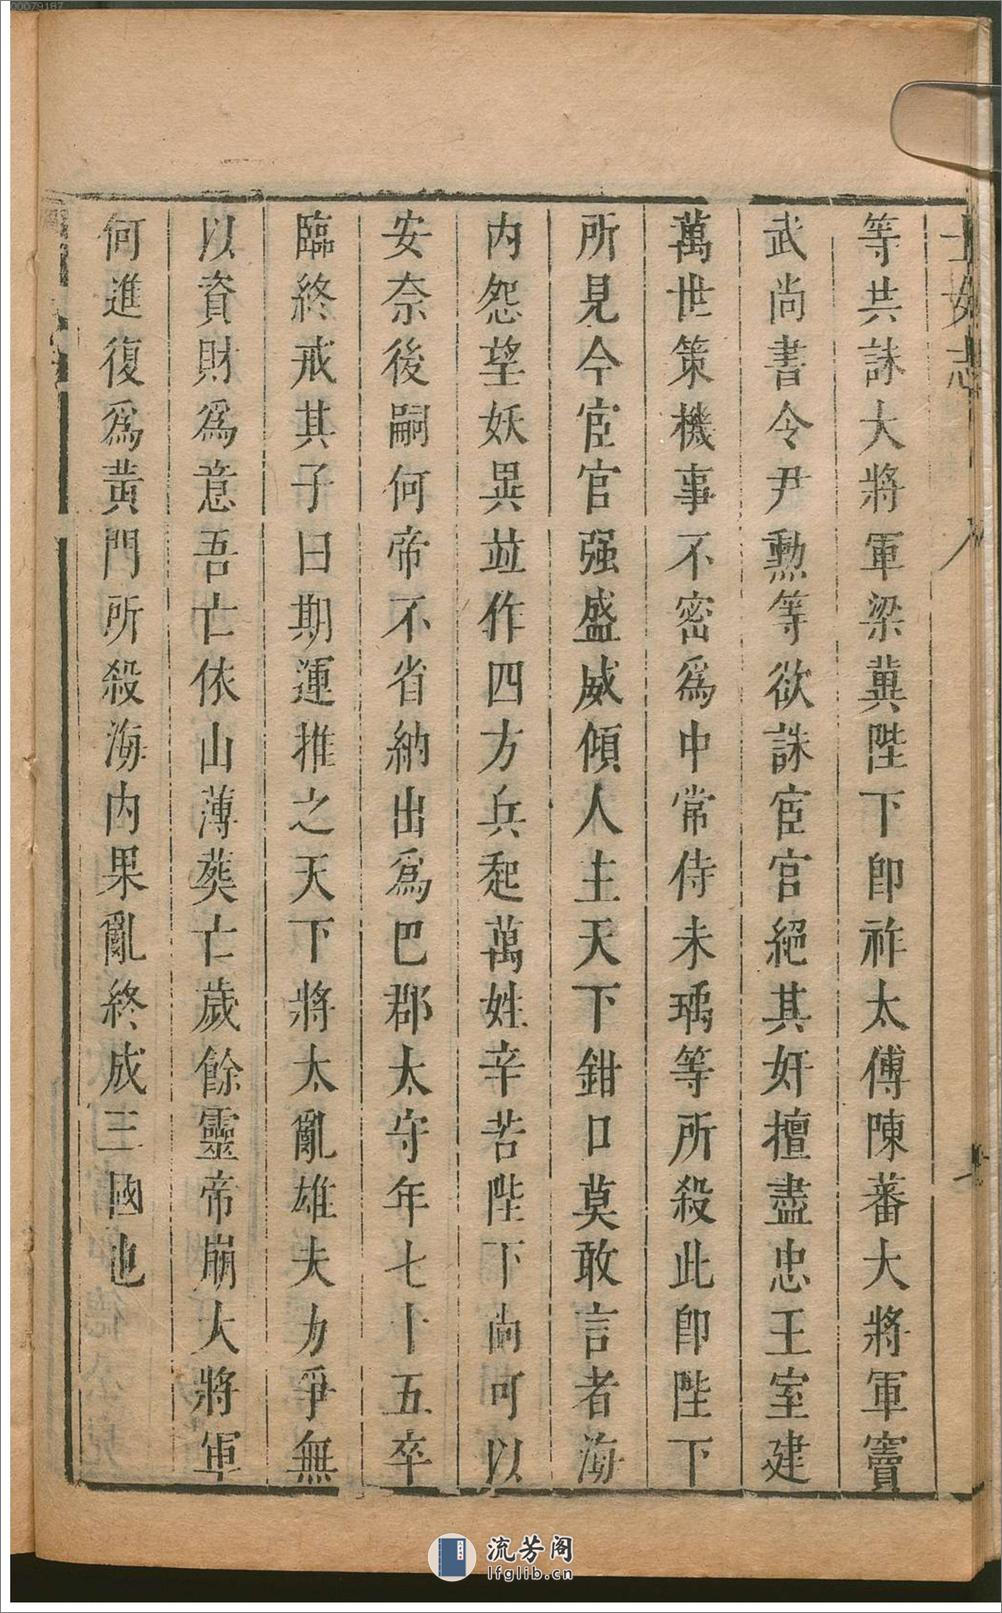 士女志
等共誅大將軍梁冀陛下卽祚太傅陳蕃大將軍竇
武尚書令尹勲等欲誅宦官絕其奸擅盡忠王室建
萬世策機事不密爲中常侍朱瑀等所殺此卽陛下
所見今宦官强盛威傾人主天下鉗口莫敢言者海
内怨望妖異並作四方兵起萬姓辛苦陛下尚可以
安奈後嗣何帝不省納出爲巴郡太守年七十五卒
臨終戒其子曰期運推之天下將太亂雄夫力爭無
以資財爲意吾亡依山薄葬亡歲餘靈帝崩大將軍
何進復爲黃門所殺海内果亂終成三國也
00079187
流芳阁
lfglib.cn